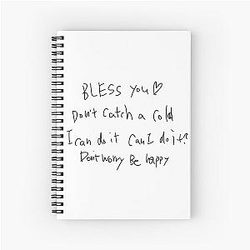 BLESS YOU♡
Don't Catch a Cold
I can do it Can I do it?
Don't worry Be happy